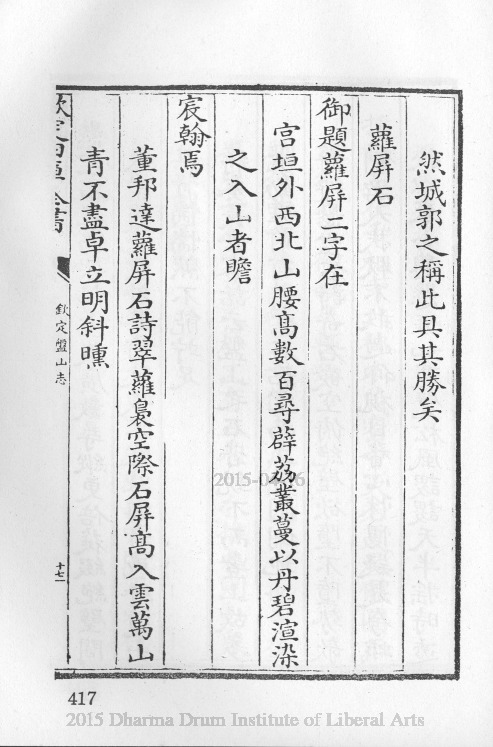 然城郭之稱此具其勝矣
蘿屏石
御題蘿屏二字在
宮垣外西北山腰髙數百尋薜荔叢蔓以丹碧渲染
之入山者瞻
宸翰焉
董邦達蘿屏石詩翠蘿裊空際石屏髙入雲萬山
青不盡卓立明斜曛
欽定四庫全書
欽定盤山志
十七
417
2015-04-16
2015 Dharma Drum Institute of Liberal Arts